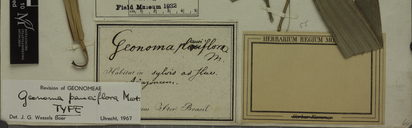 Field Museum 1932
Geonoma pauciflora
M.
Habitat in sylvis ad fluv.
Brasil
HERBARIUM REGIUM MO
Revision of GEONOMEAE
Geonoma pauciflora Mart.
TYPE
Det. J. G. Wessels Boer Utrecht, 1967